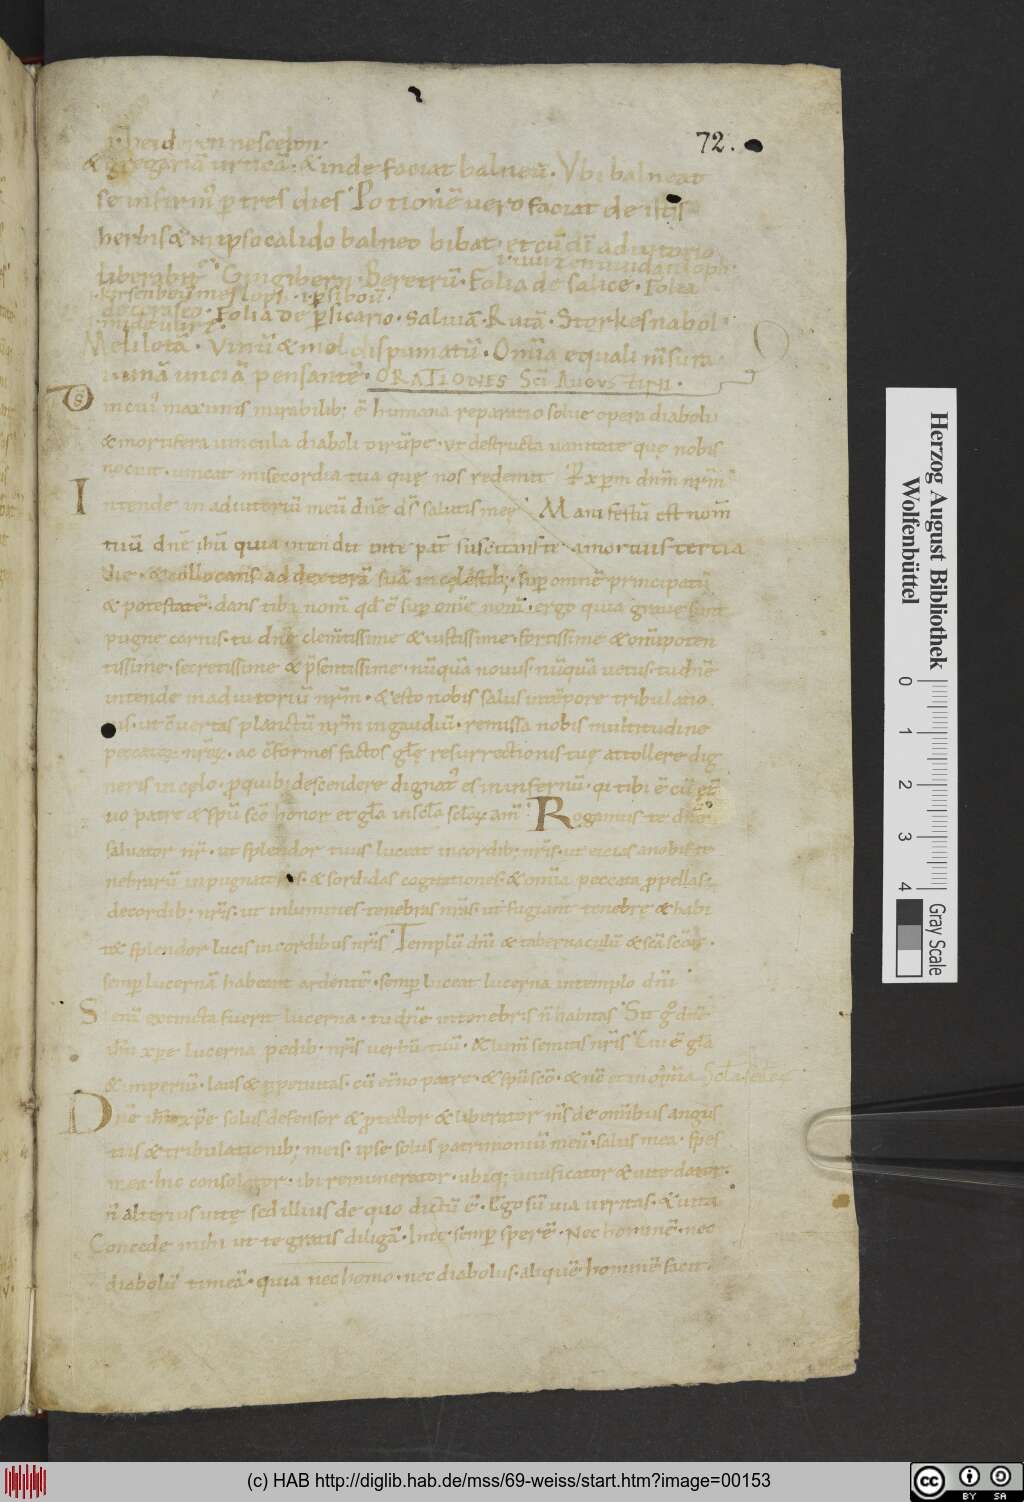 72.
.i. heideren nescelon.
& gregariā urticā. & inde faciat balneū. Vbi balneat
se infirmꝰ p tres dies. Potionē uero faciat de istis
herbis & in ipso calido balneo bibat. et cū dī adiutorio
liberabit̄ Gingiberi. Beretrū. Folia de salice. Folia
Folia de p̄sicario. Saluiā. Rutā. Storkesnabol
Melilotā. Vinū & mel dispumatū. Om̄ia equali m̄sura
unā unciā pensante. ORATIONES Sc̄i AugusTINI.
Ds̄ in cuiꝰ maximis mirabilib; ē humana reparatio solue opera diaboli
& mortifera uincula diaboli dirūpe. ut destructa uanitate quę nobis
nocuit. uincat misecordia tua quę nos redemit P xpm dnm nrm
Intende in adiutoriū meū dn̄e ds̄ salutis meę. Manifestū est nom̄
tuū dn̄e ihū quia intendit in te pat̄ suscitans te a mortuis tertia
die. & collocans ad dexterā suā in cęlestib; sup omnē principatū
& potestatē. dans tibi nom̄ qd̄ ē sup om̄e nom̄. ergo quia graue sunt
pugne carnis. tu dn̄e clem̄tissime & iustissime. fortissime & om̄ipoten
tissime. secretissime & p̄sentissime. nūquā nouus. nūquā uetus. tu dn̄e
intende in adiutoriū nr̄m. & esto nobis salus in tēpore tribulatio
nis. ut c̄uertas planctū nr̄m in gaudiū. remissa nobis multitudine
peccatoꝝ nr̄oꝝ. ac c̄formes factos gl̄ę resurrectionis tuę attollere dig
neris in cęlo. p quib; descendere dignatꝰ es in infernū. qi tibi ē cū et̄
no patre & sp̄ū sc̄o honor et gl̄a in sc̄la sc̄loꝝ am̄. Rogamus te dn̄e
saluator nr̄. ut splendor tuus luceat in cordib; nr̄is. ut eicias a nobis te
nebrarū inpugnationes. & sordidas cogitationes. & om̄ia peccata ppellas
de cordib; nr̄is. ut inlumines tenebras nr̄as. ut fugiant tenebrę & habi
tet splendor lucis in cordibus nr̄is Templū dn̄i & tabernaculū & sc̄ā sc̄oꝝ.
semp lucernā habeant ardentē. semp luceat lucerna in templo dn̄i
Senū extincta fuerit lucerna. tu dn̄e in tenebris n̄ habitas Sit gͦ dn̄e
ihū xpe lucerna pedib; nr̄is uerbū tuū. & lum̄ semitis nr̄is Cui ē gl̄a
& imperiū. laus & ppetuitas. cū et̄no patre. & sp̄ū sc̄o. & nc̄ et in om̄ia sc̄la sc̄loꝝ
Dn̄e ihū xp̄e solus defensor & ptector & liberator nr̄s de om̄ibus angus
tiis & tribulationib; meis. ipse solus patrimoniū meū. salus mea. spes
mea. hic consolator. ibi remunerator. ubiq; uiuificator & uite dator.
n̄ alterius uitę sed illius de quo dictū ē. Ego sū uia ueritas. & uita
Concede mihi ut te gratis diligā. In te semp sperē. Nec hominē. nec
diabolū timeā. quia nec homo. nec diabolus. aliquē hominē facit.
Herzog August Bibliothek
Wolfenbüttel
0 1 2 3 4
Gray Scale
(c) HAB http://diglib.hab.de/mss/69-weiss/start.htm?image=00153
cc BY SA